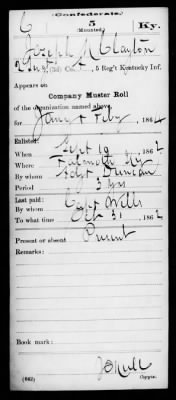 (Confederate.)
C 5 Ky.
(Mounted.)
Joseph Clayton
Co., 5 Reg't Kentucky Inf.
Appears on
Company Muster Roll
of the organization named above,
for Jany & Feby, 1864
Enlisted:
When Sept 19, 1862
Where Falmouth Ky
By whom Duncan
Period 3 yrs
Last paid:
By whom Capt Wells
To what time Oct 31, 186
Present or absent Present
Remarks:
Book mark:
(642)
Copyist.